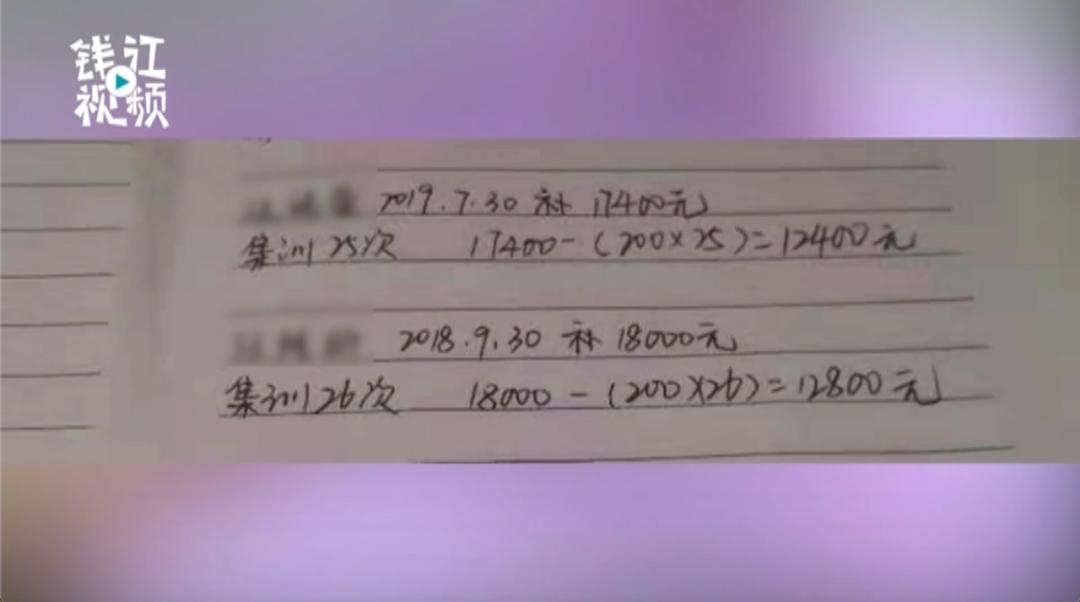 钱江
视频
2019.7.30 补 17400元
集训25次 17400-(200×25)=12400元
2018.9.30 补 18000元
集训26次 18000-(200×26)=12800元